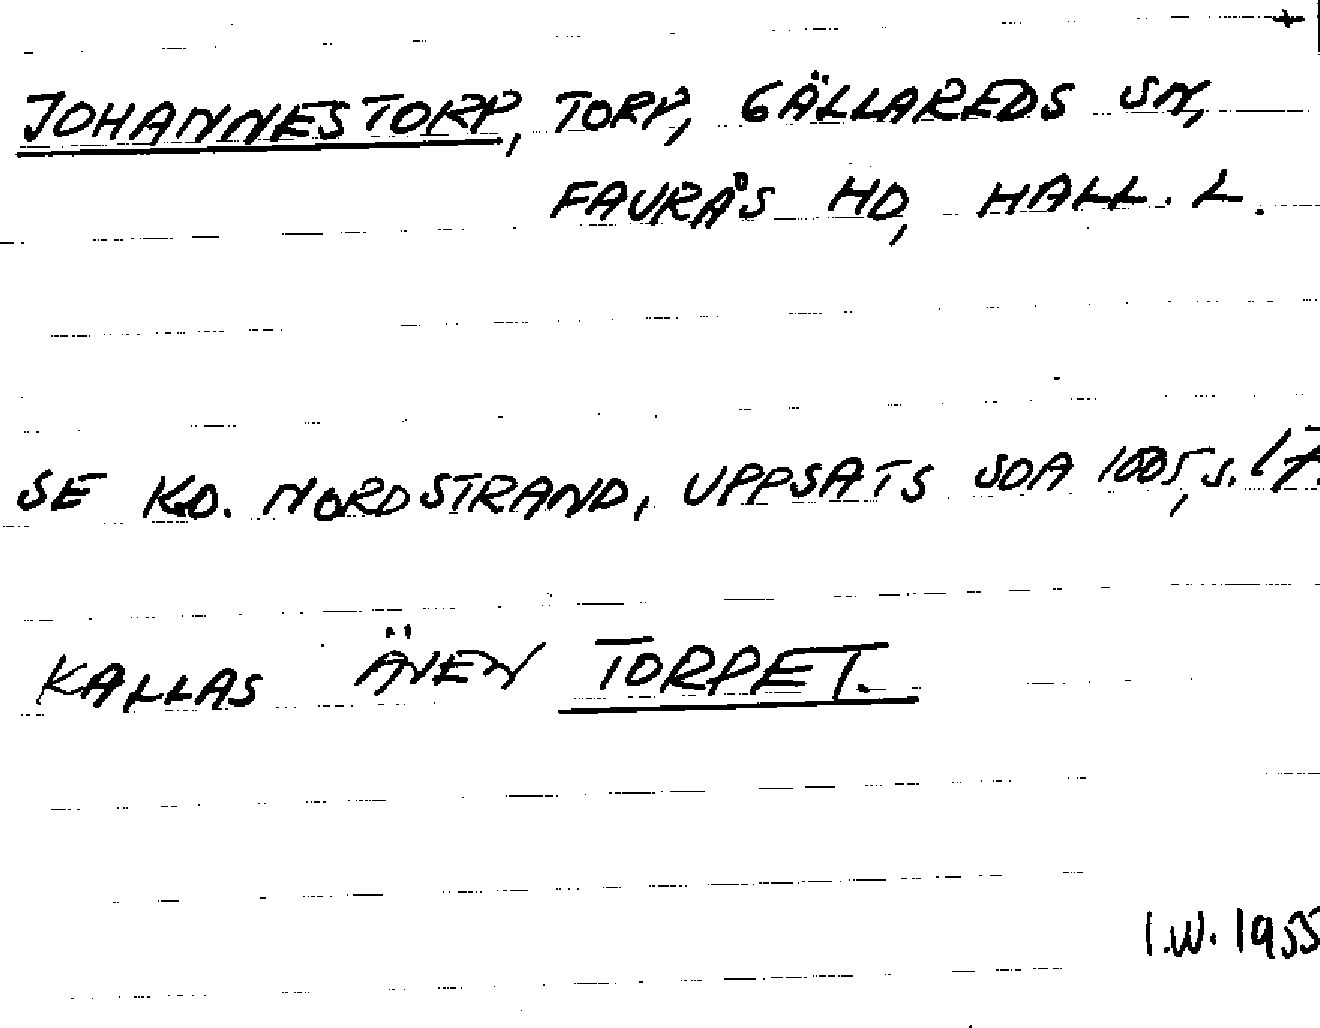 JOHANNESTORP, TORP, GÄLLAREDS SN,
FAURÅS HD, HALL. L.
SE K.D. NORDSTRAND, UPPSATS SOA 1005, S. 17.
KALLAS ÄVEN TORPET.
I.W. 1955